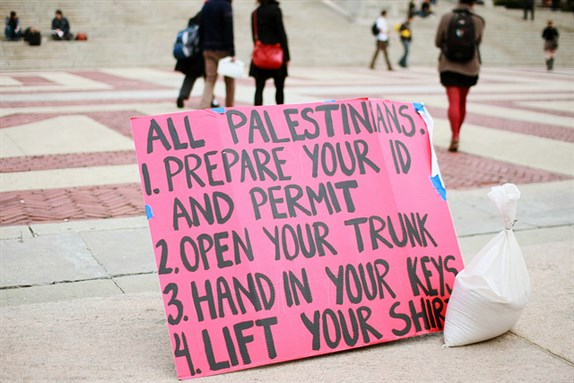 ALL PALESTINIANS.
1. PREPARE YOUR ID
AND PERMIT
2. OPEN YOUR TRUNK
3. HAND IN YOUR KEYS
4. LIFT YOUR SHIRT